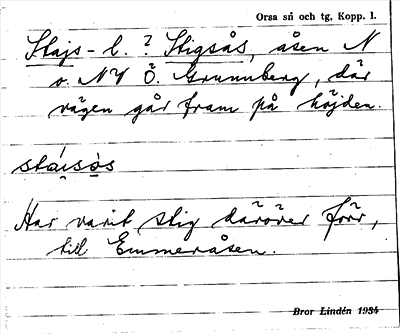 Orsa sn och tg, Kopp. l.
Stajs- l. ? Stigsås, åsen N
o. NV Ö. Grunnberg, där
vägen går fram på höjden.
stájsås
Har varit stig däröver förr,
till Emmeråsen.
Bror Lindén 1934